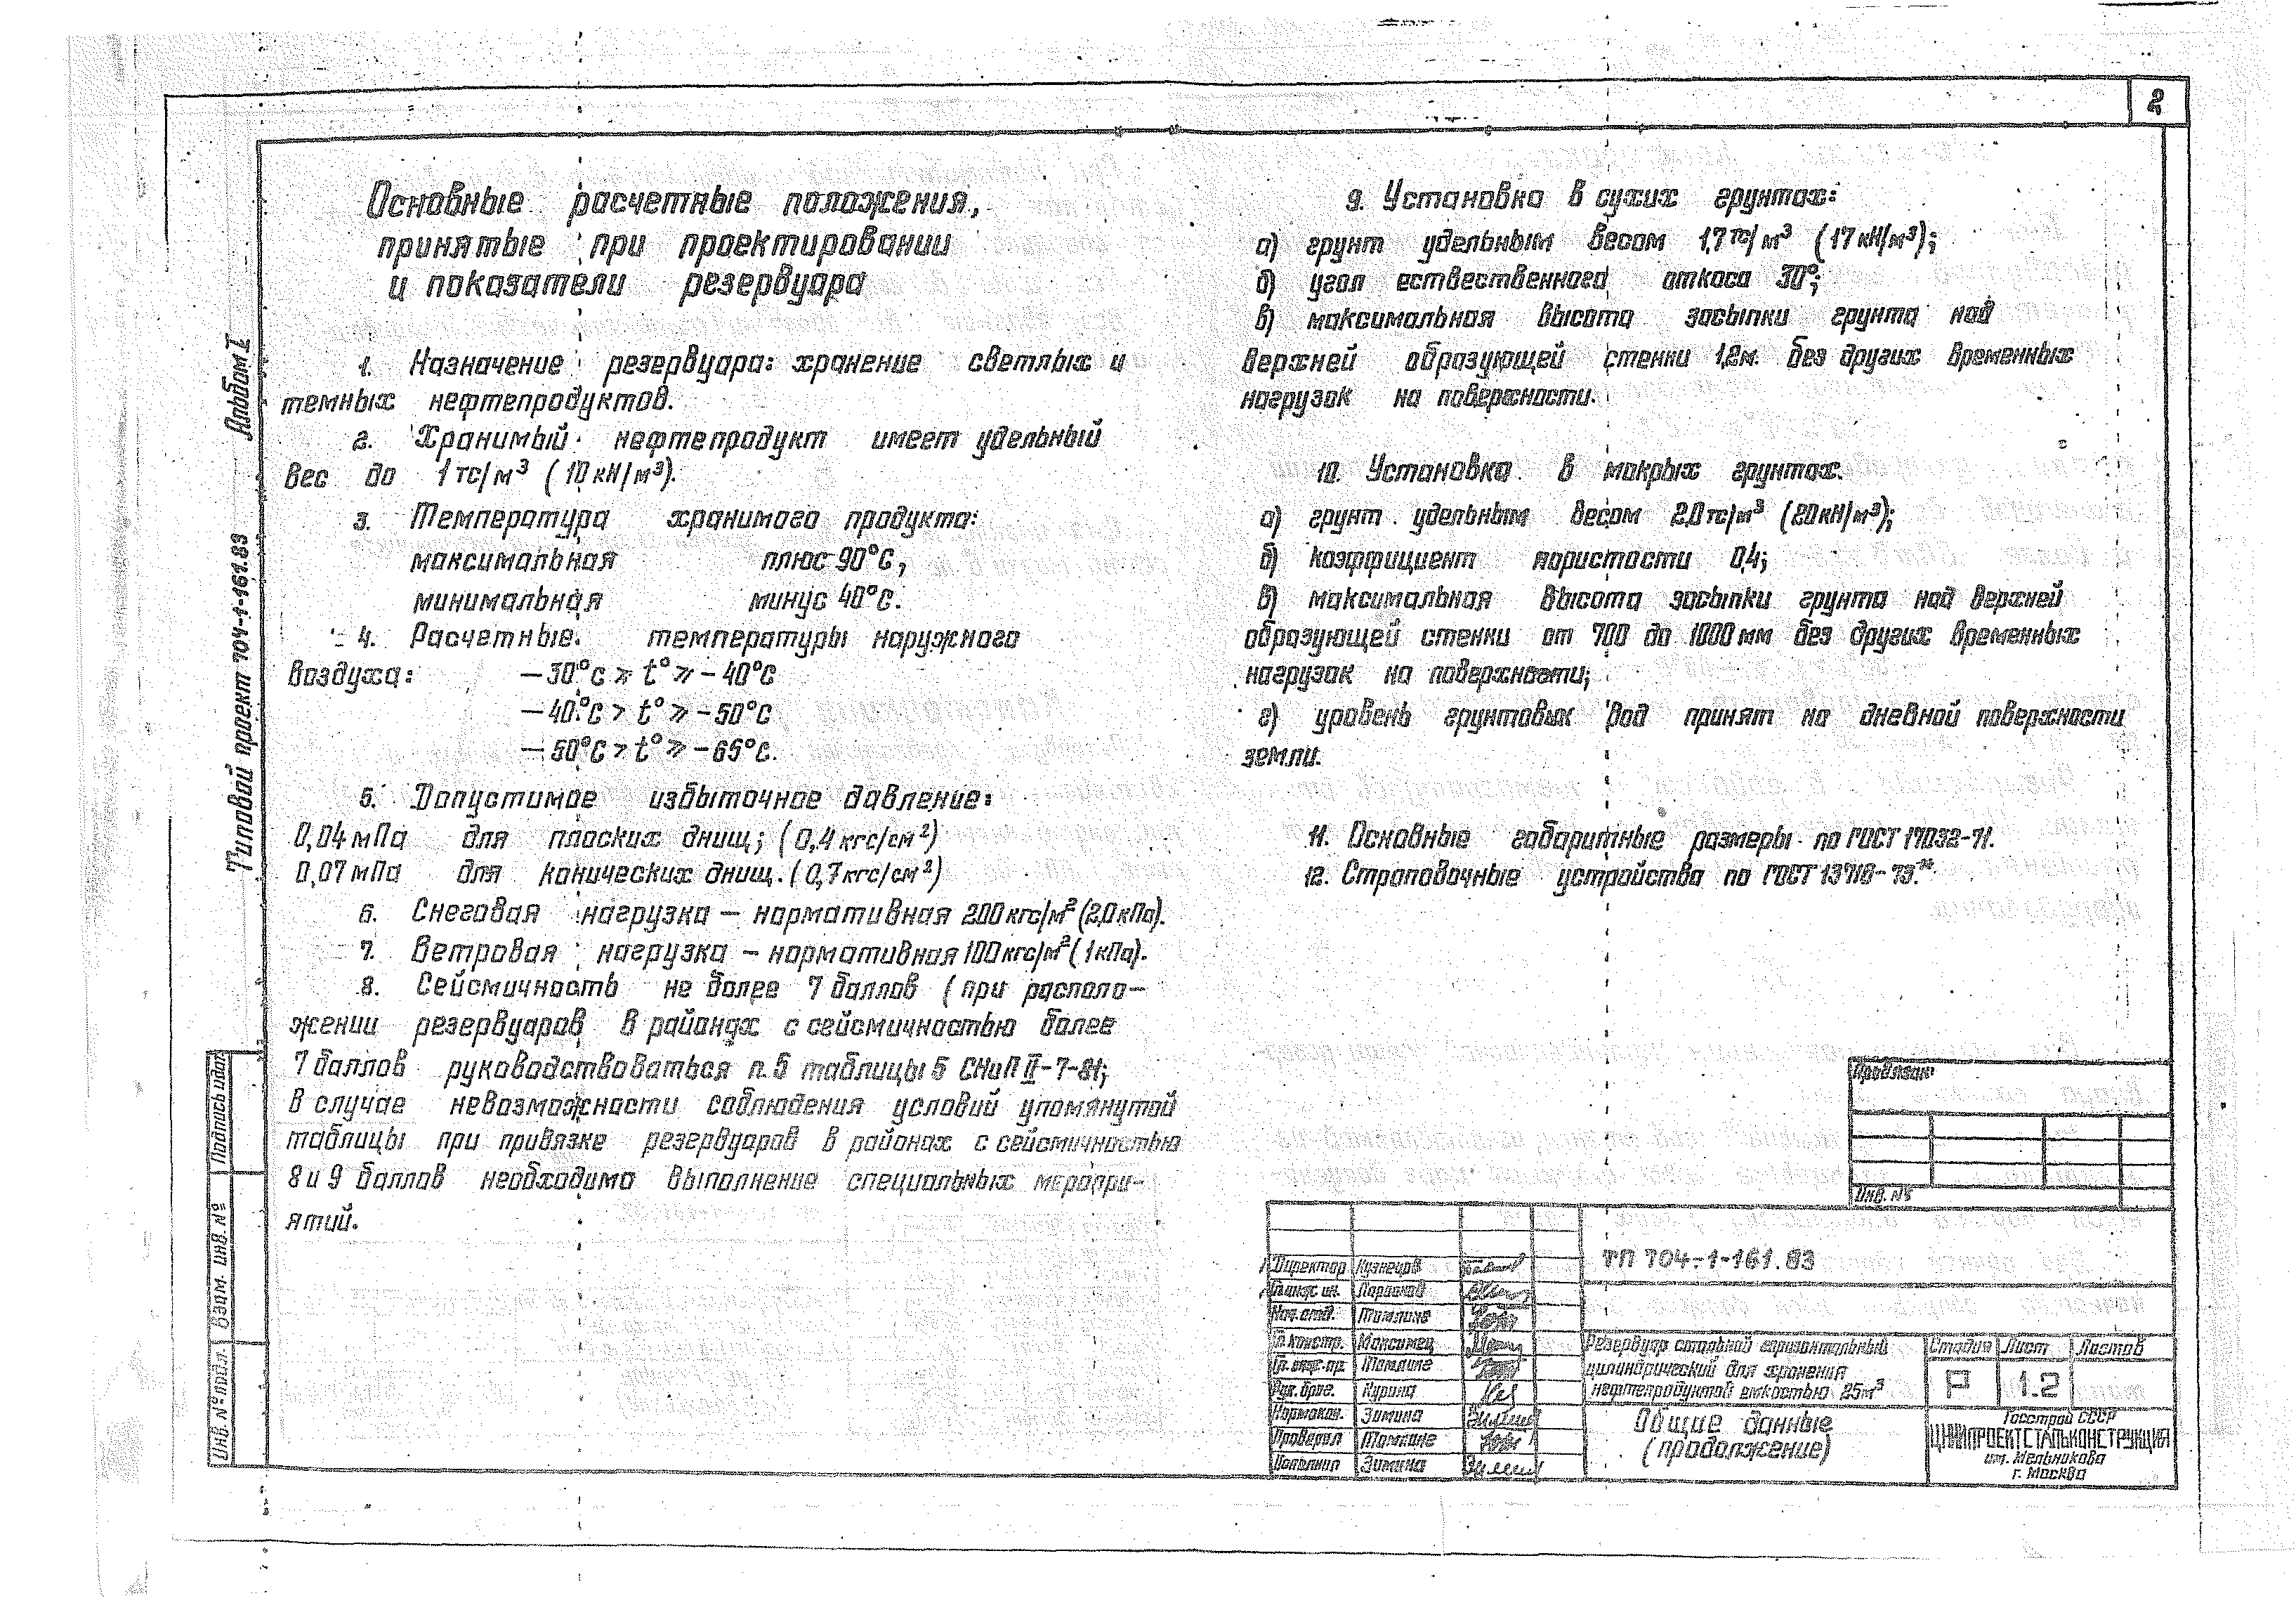 2
Альбом I
Типовой проект 704-1-161.83
Основные расчетные положения,
принятые при проектировании
и показатели резервуара
1. Назначение резервуара: хранение светлых и
темных нефтепродуктов.
2. Хранимый нефтепродукт имеет удельный
вес до 1 тс/м³ (10 кН/м³).
3. Температура хранимого продукта:
максимальная плюс 90°С,
минимальная минус 40°С.
4. Расчетные температуры наружного
воздуха: −30°С ⩾ t° ⩾ −40°С
−40°С > t° ⩾ −50°С
−50°С > t° ⩾ −65°С.
5. Допустимое избыточное давление:
0,04 мПа для плоских днищ; (0,4 кгс/см²)
0,07 мПа для конических днищ. (0,7 кгс/см²)
6. Снеговая нагрузка – нормативная 200 кгс/м² (2,0 кПа).
7. Ветровая нагрузка – нормативная 100 кгс/м² (1 кПа).
8. Сейсмичность не более 7 баллов (при располо-
жении резервуаров в районах с сейсмичностью более
7 баллов руководствоваться п.5 таблицы 5 СНиП II-7-81;
В случае невозможности соблюдения условий упомянутой
таблицы при привязке резервуаров в районах с сейсмичностью
8 и 9 баллов необходимо выполнение специальных меропри-
ятий.
9. Установка в сухих грунтах:
а) грунт удельным весом 1,7 тс/м³ (17 кН/м³);
б) угол естественного откоса 30°;
в) максимальная высота засыпки грунта над
верхней образующей стенки 1,2м. без других временных
нагрузок на поверхности.
10. Установка в мокрых грунтах.
а) грунт удельным весом 2,0 тс/м³ (20 кН/м³);
б) коэффициент пористости 0,4;
в) максимальная высота засыпки грунта над верхней
образующей стенки от 700 до 1000 мм без других временных
нагрузок на поверхности;
г) уровень грунтовых вод принят на дневной поверхности
земли.
11. Основные габаритные размеры по ГОСТ 17032-71.
12. Строповочные устройства по ГОСТ 13716-73.*
Подпись и дата
Взам. инв. №
Инв. № подл.
Привязан
Инв. №
ТП 704-1-161.83
Директор Кузнецов
Гл.инж. ин.
Нач. отд.
Гл. констр. Максимец
Гл. инж. пр.
Рук. бриг. Курина
Нормокон. Зимина
Проверил
Исполнил Зимина
Резервуар стальной горизонтальный
цилиндрический для хранения
нефтепродуктов емкостью 25м³
Общие данные
(продолжение)
Стадия Лист Листов
Р 1.2
Госстрой СССР
ЦНИИПРОЕКТСТАЛЬКОНСТРУКЦИЯ
им. Мельникова
г. Москва